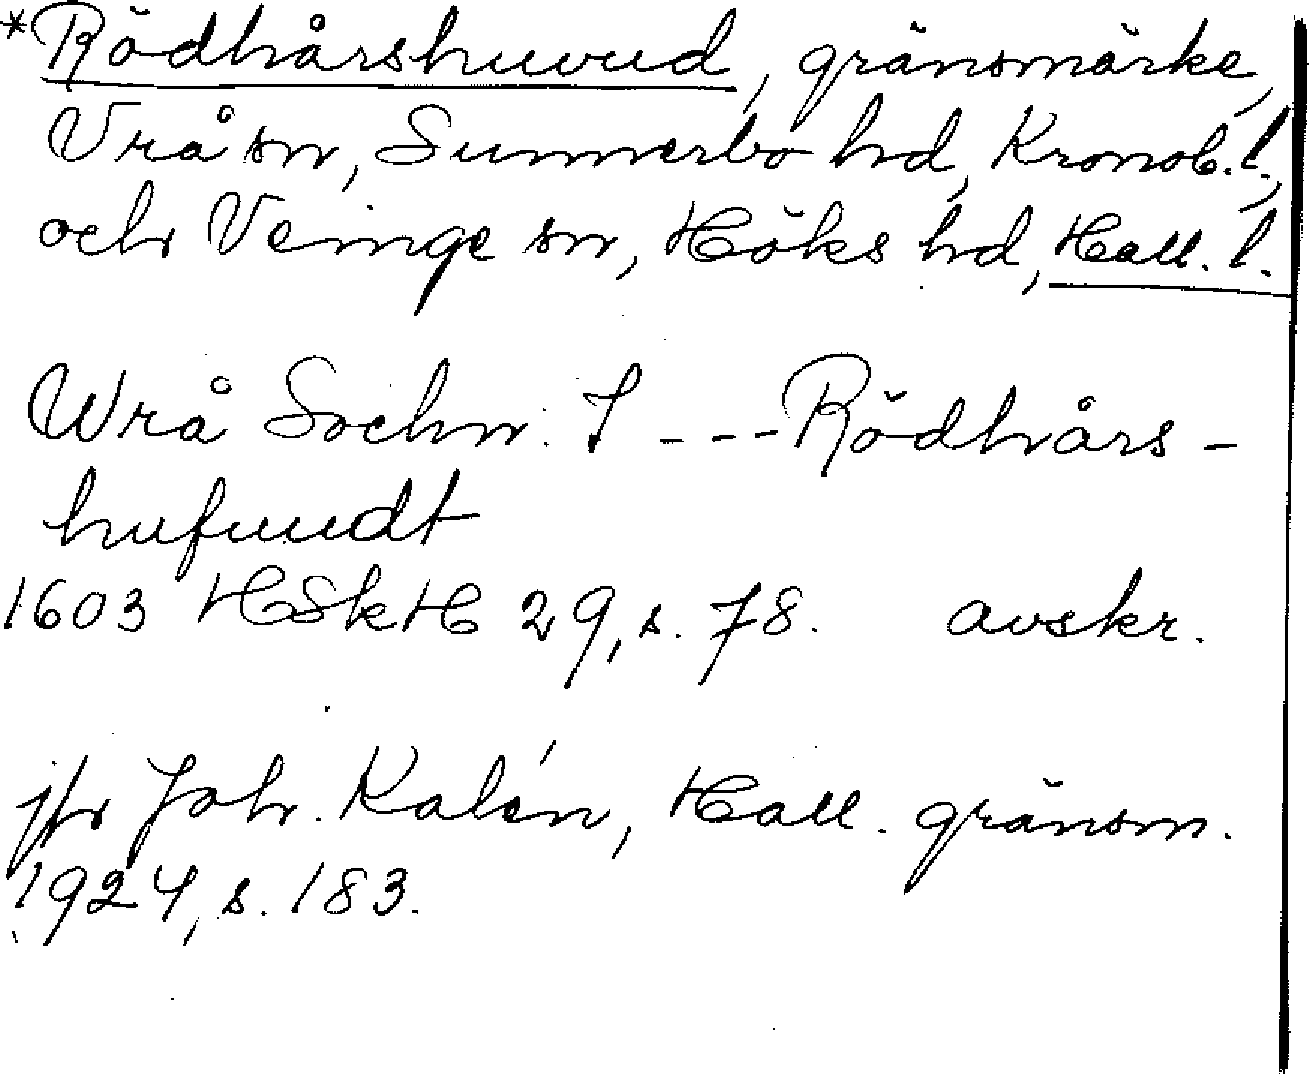 *Rödhårshuvud, gränsmärke,
Vrå sn, Sunnerbo hd, Kronob. l.,
och Veinge sn, Höks hd, Hall. l.
Wrå Sochn. I --- Rödhårs-
hufuudt
1603 HSkH 29, s. 78. avskr.
jfr Joh. Kalén, Hall. gränsm.
1924, s. 183.